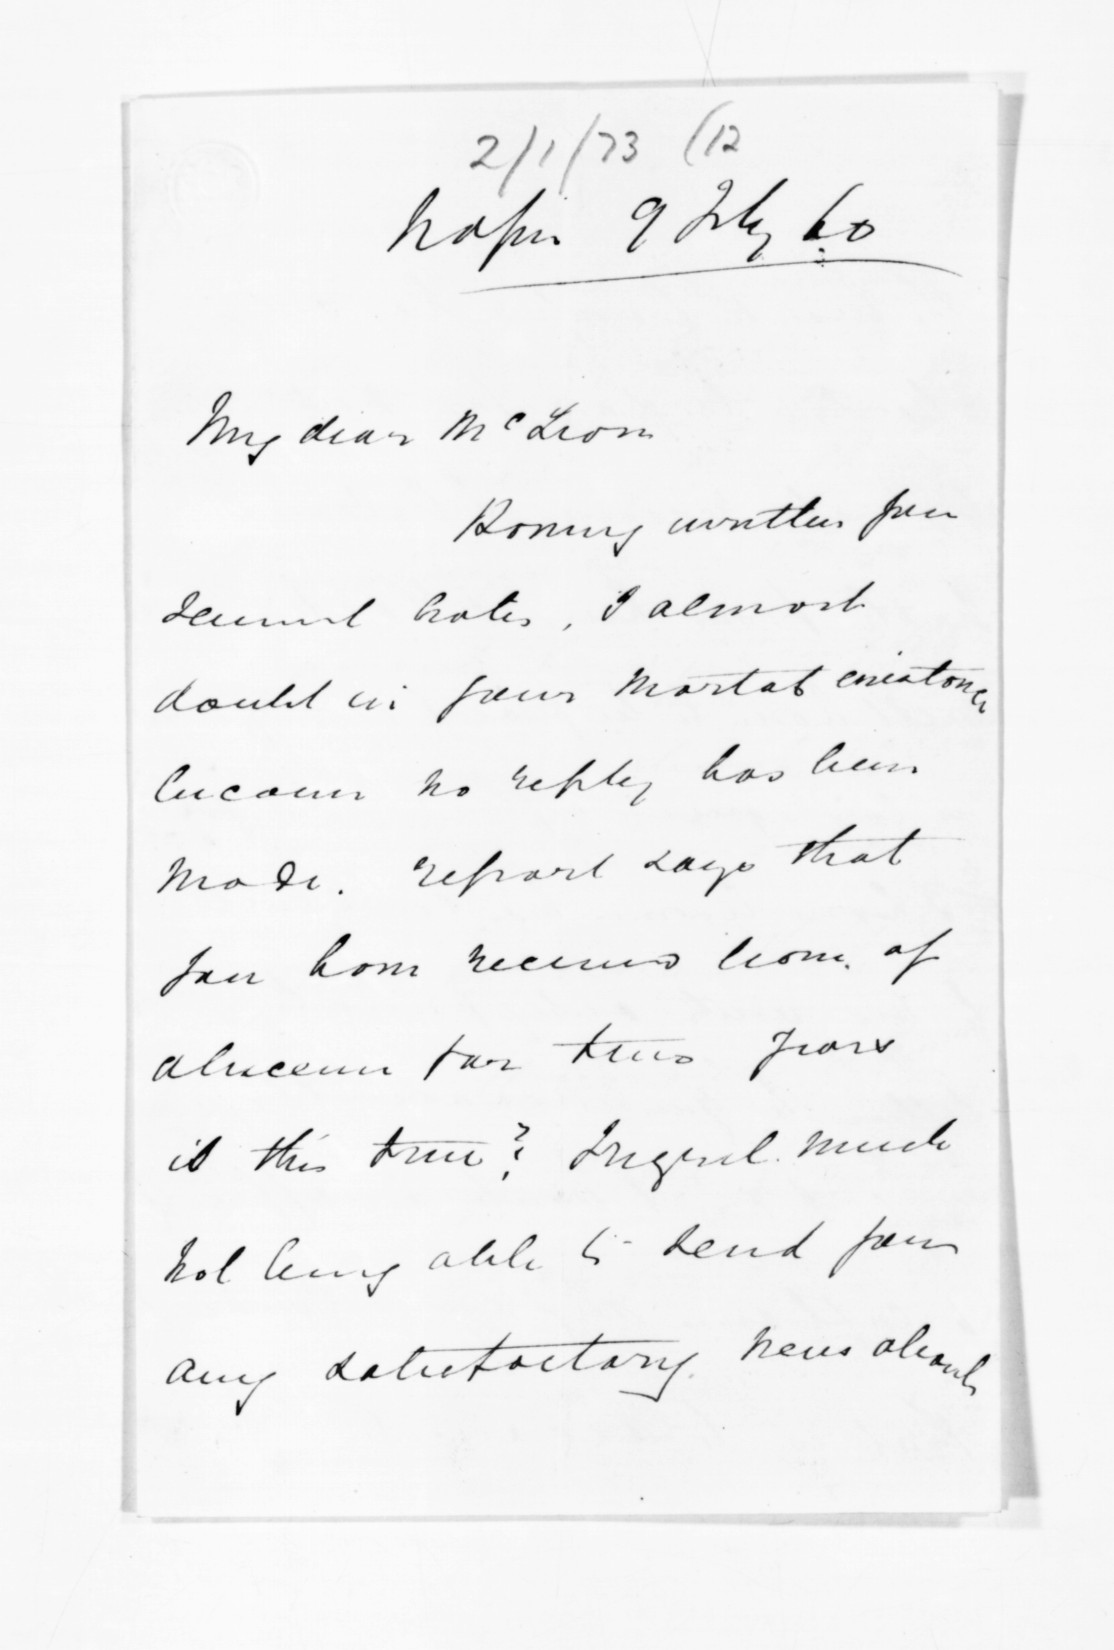 2/1/73 (12
Napier 9 July 60
My dear McLean
Having written you
several notes, I almost
doubt in your mortal existance
because no reply has been
made. report says that
you have received leave of
absence for two years
is this true? I regret much
not being able to send you
any satisfactory news about